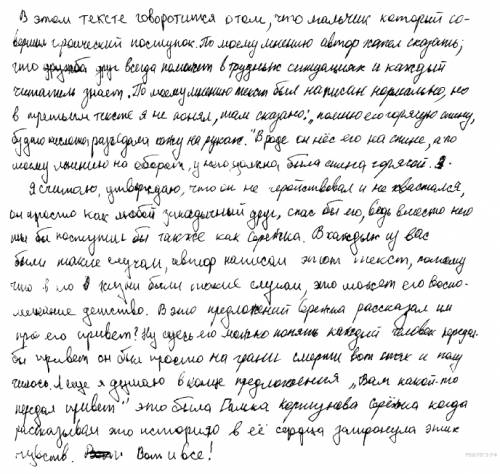 В этом тексте говоротится о том, что мальчик которий со-
вершил гроический поступок. По моему мнению автор хотел сказать;
что дружба друг всегда поможет в трудных ситуациях и каждый
читатель знает. По моему мнению текст был написан нормально, но
в третьем тексте я не понял, там сказано: помню его горячую спину,
будто кислота разъедала кожу на руках." Вроде он нёс его на спине, а по
моему мнению на оборот, у него должна была спина горячой.
Я считаю, утверждаю, что он не геройствовал и не хвастался,
он просто как любой закадычный друг, спас бы его, ведь вместо него
мы бы поступили бы также как Серёжка. В каждых из вас
были такие случаи, автор написал этот текст, потому
что в его жизни были такие случаи, это может его воспо-
менание детство. В это предложений Серёжка рассказал им
про его привет? Ну здесь его можно понять каждый человек передал
бы привет он был просто на грани смерти вот так и полу
чилось. А еще я думаю в конце предложения „Вам какой-то
передал привет" это была Галька Коршунова Серёжка когда
рассказывал это историю в её сердца затронула этих
чувств. Вот и все!